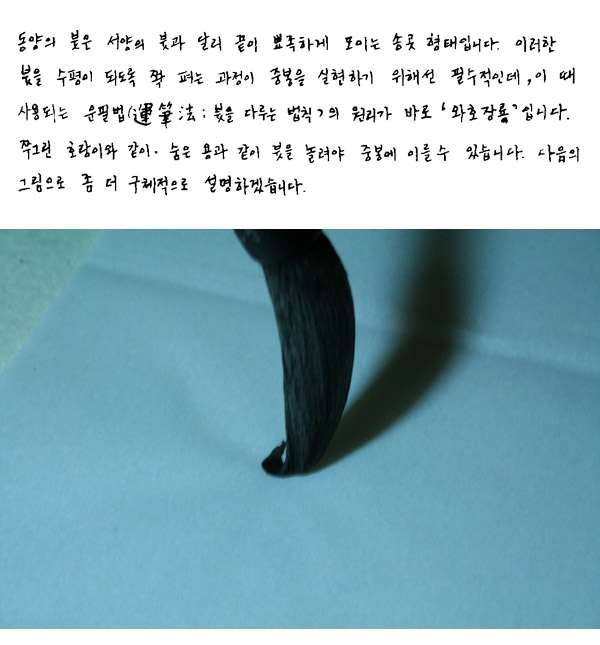 동양의 붓은 서양의 붓과 달리 끝이 뾰족하게 모이는 송곳 형태입니다. 이러한
붓을 수평이 되도록 쫙 펴는 과정이 중봉을 실현하기 위해선 필수적인데, 이 때
사용되는 운필법(運筆法; 붓을 다루는 법칙)의 원리가 바로 '와호장룡'입니다.
쭈그린 호랑이와 같이. 숨은 용과 같이 붓을 놀려야 중봉에 이를 수 있습니다. 다음의
그림으로 좀 더 구체적으로 설명하겠습니다.